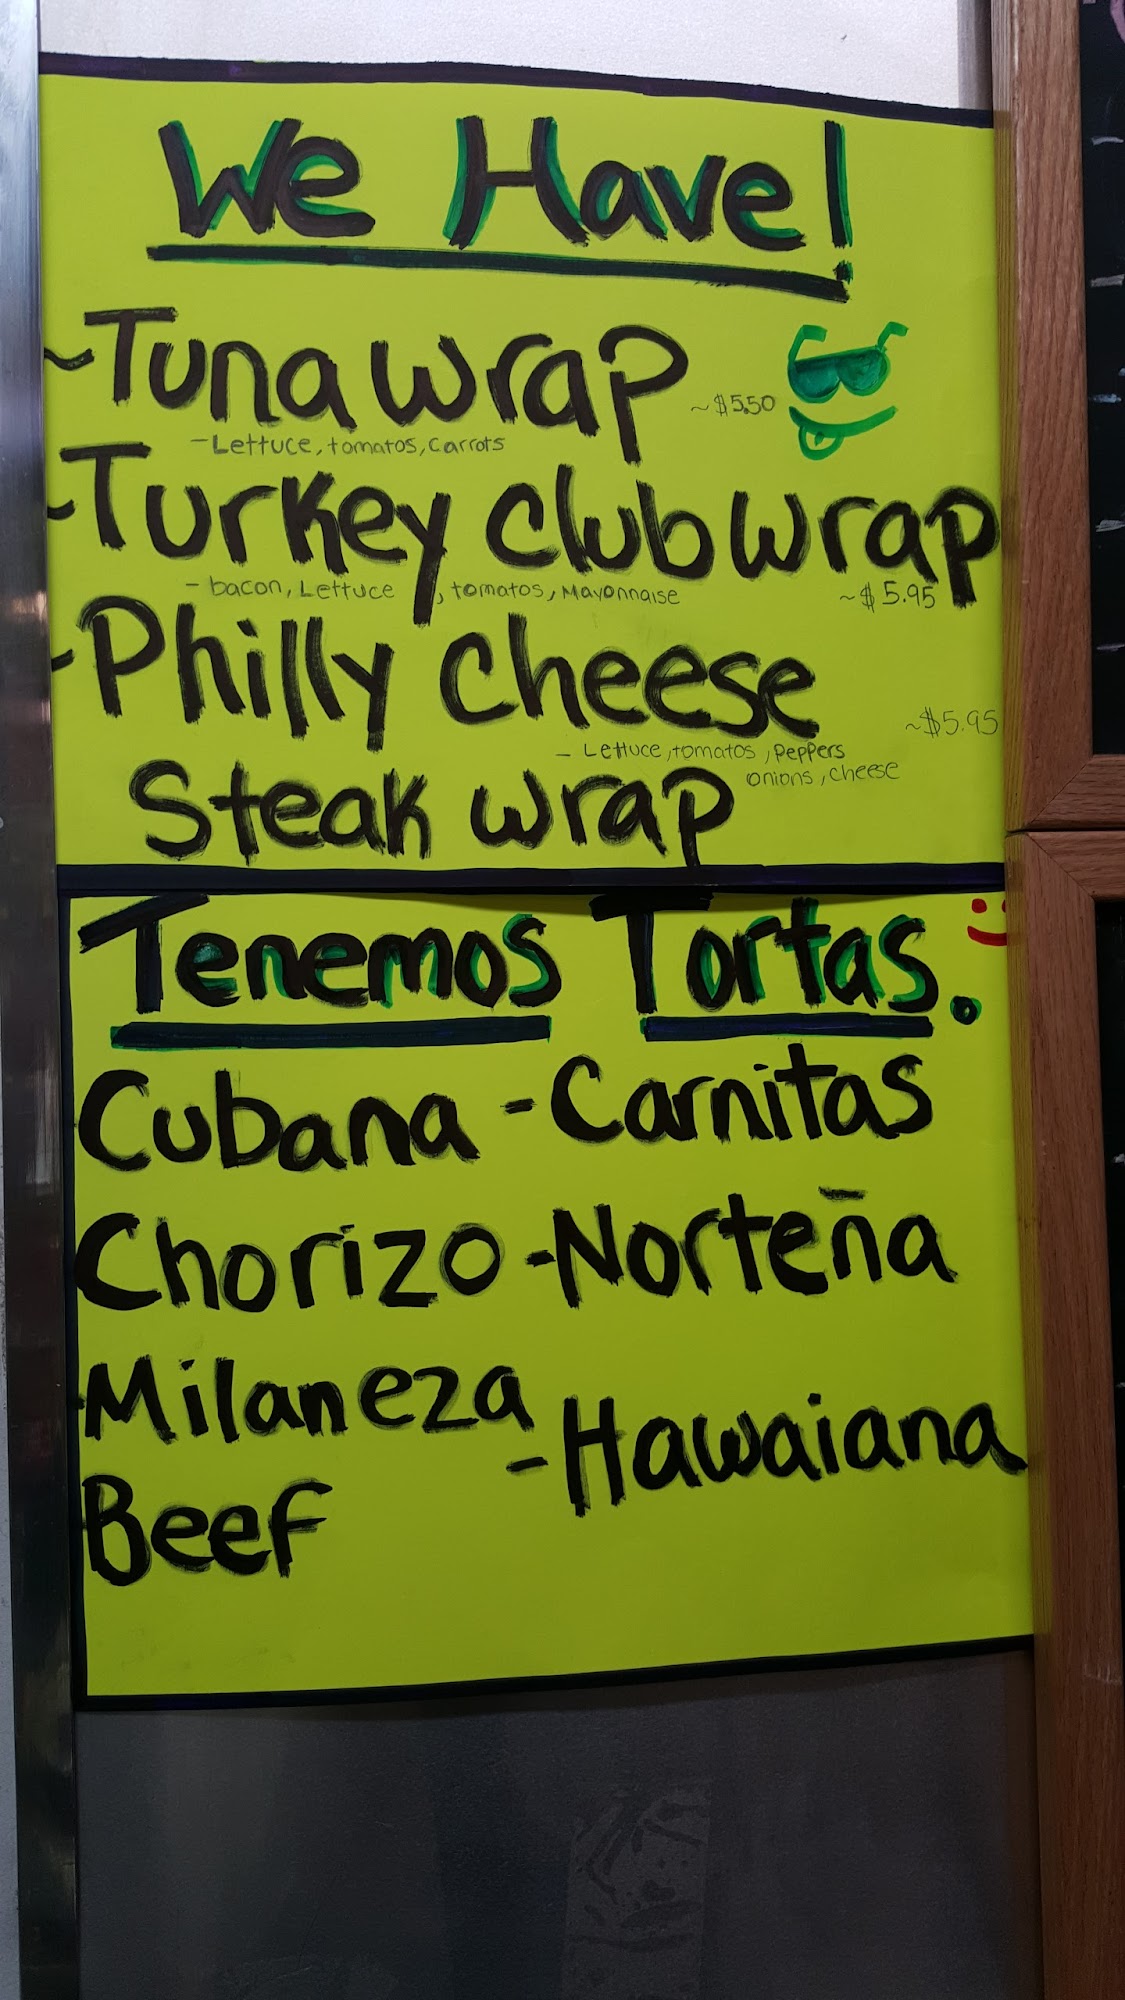 We Have!
~Tuna wrap ~$5.50
-Lettuce, tomatos, carrots
~Turkey club wrap
-bacon, Lettuce, tomatos, Mayonnaise ~$5.95
~Philly cheese ~$5.95
- Lettuce, tomatos, Peppers
onions, cheese
Steak wrap
Tenemos Tortas.
Cubana -Carnitas
Chorizo -Norteña
Milaneza
-Hawaiana
Beef